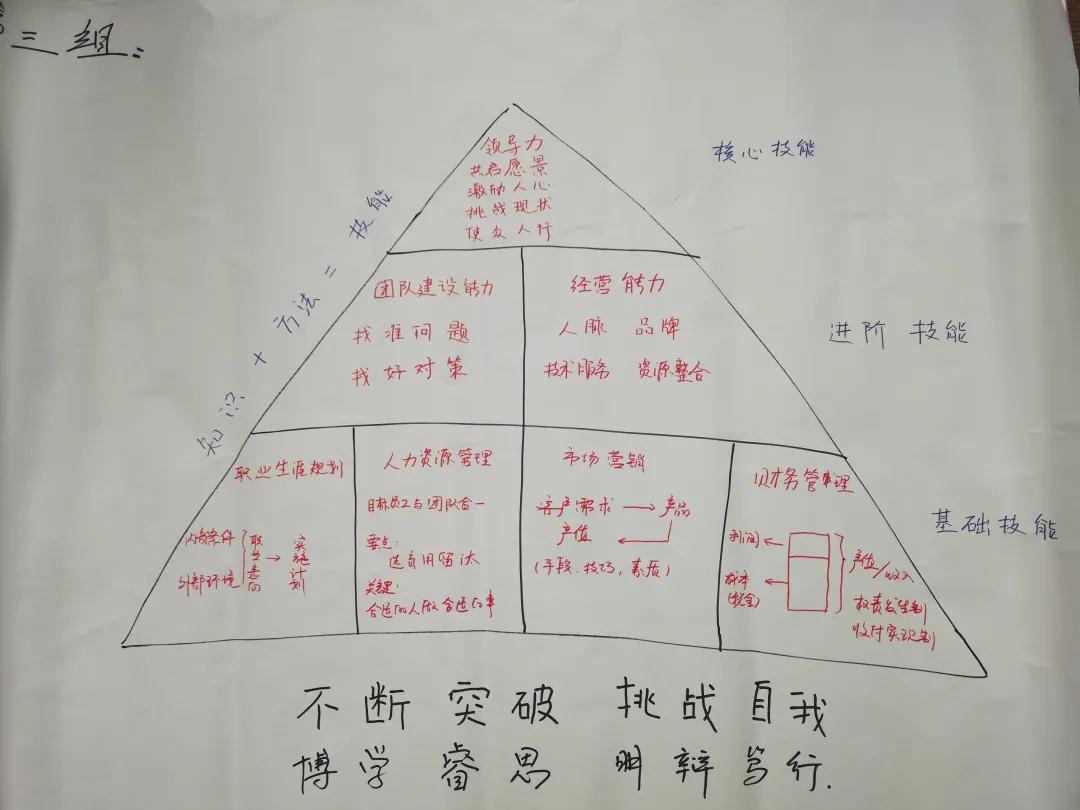 三组:
领导力
共启愿景
激励人心
挑战现状
使众人行
核心技能
知识 + 方法 = 技能
团队建设能力
找准问题
找好对策
经营能力
人脉 品牌
技术服务 资源整合
进阶技能
职业生涯规划
内部条件
外部环境
职业意向
实施计划
人力资源管理
目标员工与团队合一
要点:
选育用留汰
关键:
合适的人做合适的事
市场营销
客户需求 → 产品
产值
(手段、技巧,素质)
财务管理
利润
成本
(税金)
产值/收入
权责发生制
收付实现制
基础技能
不断突破 挑战自我
博学睿思 明辩笃行.